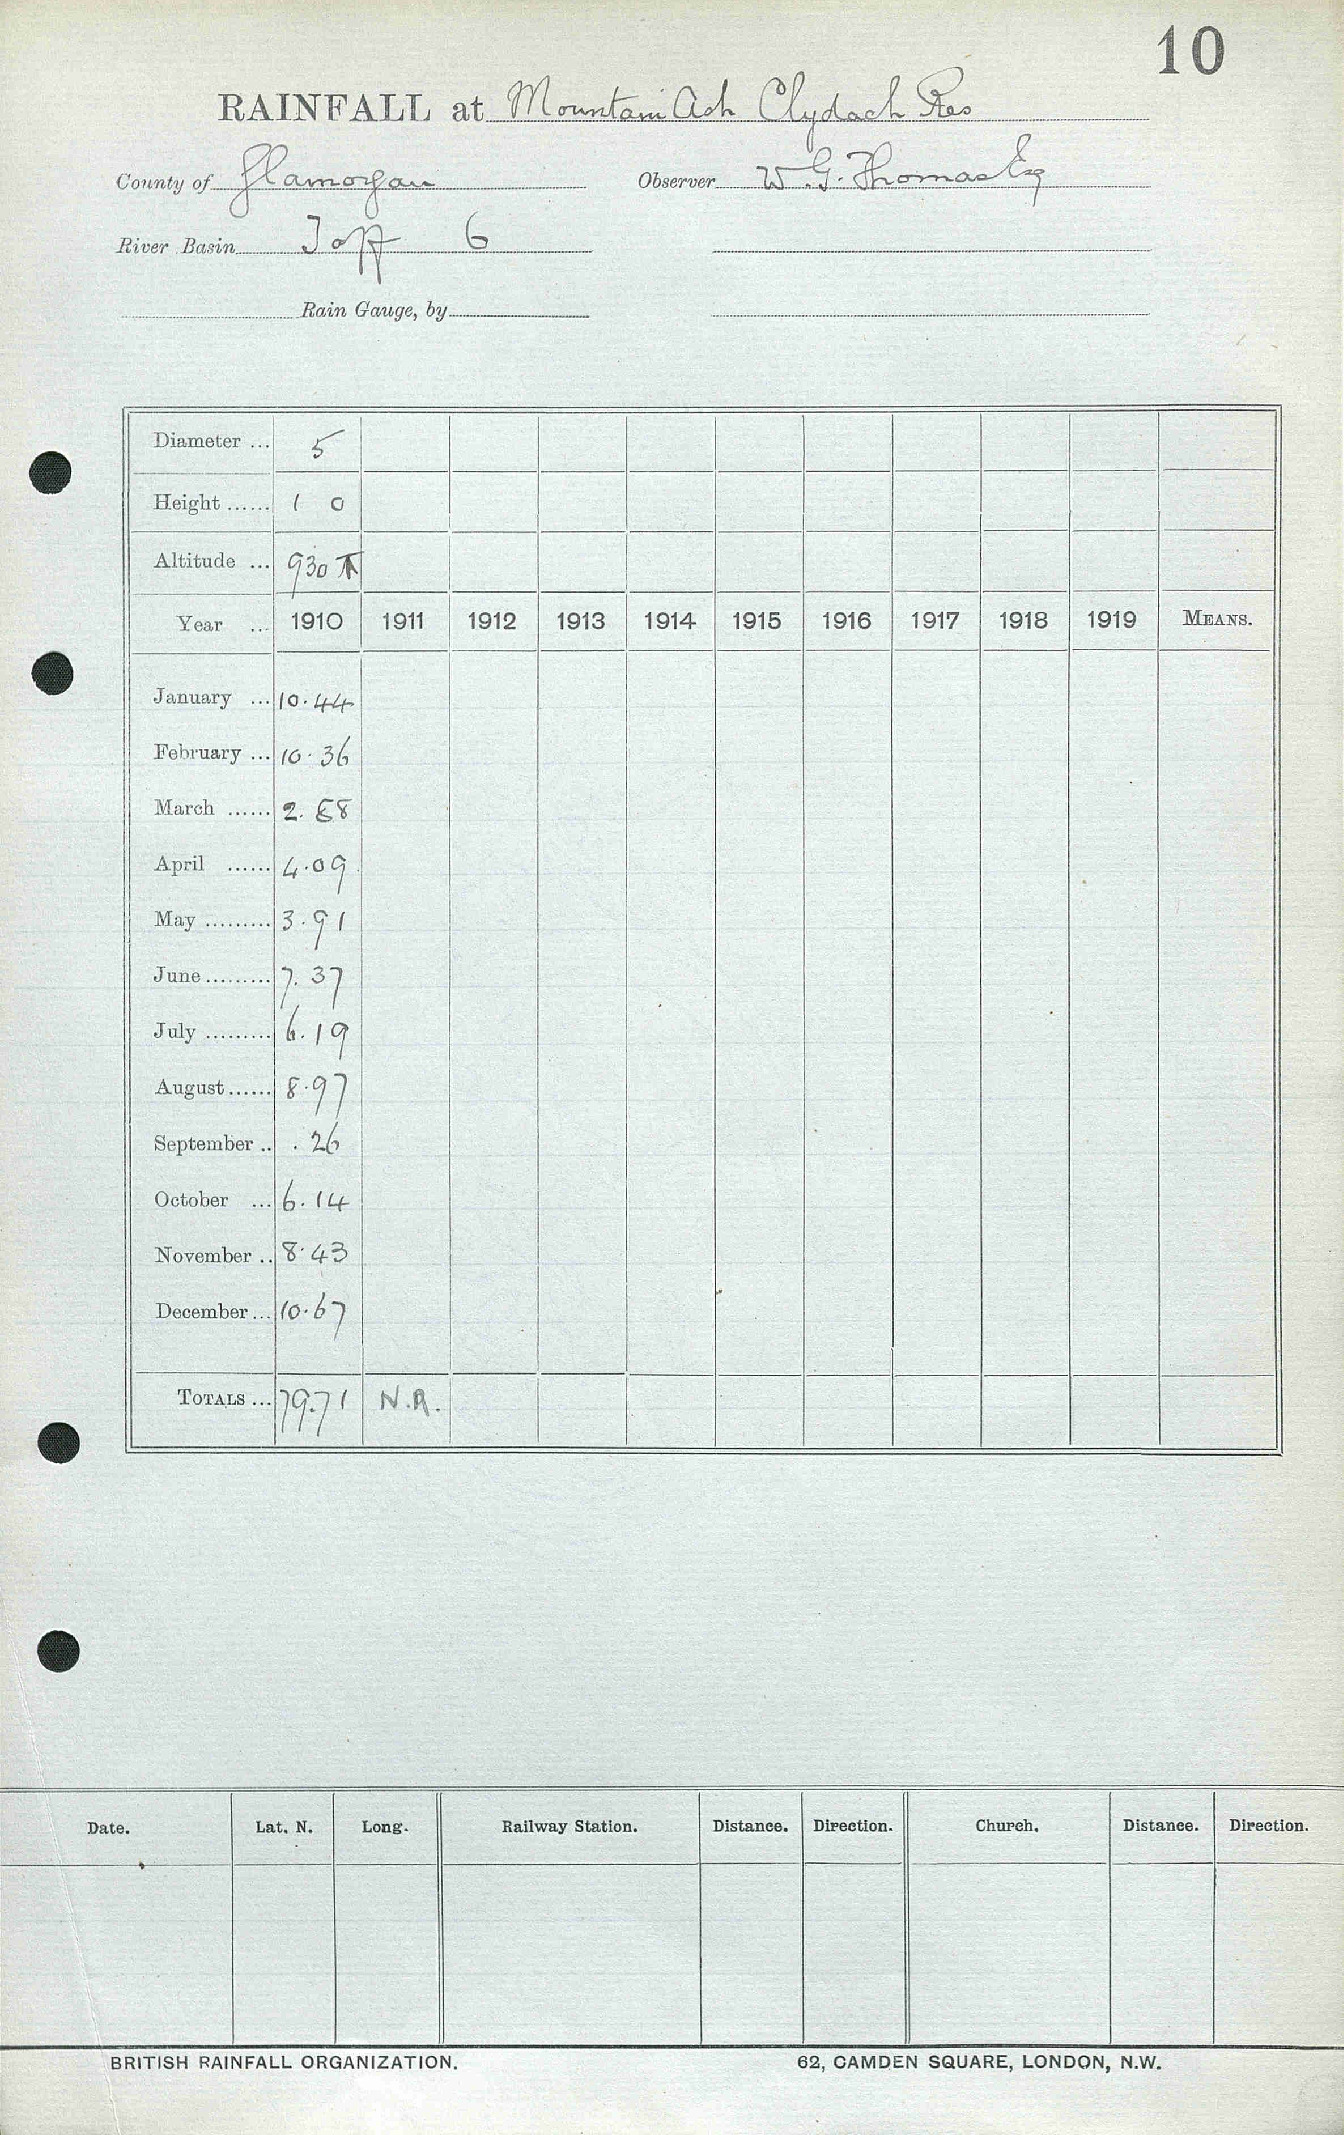 10
RAINFALL at Mountain Ash Clydach Res
County of Glamorgan Observer W. G. Thomas Esq
River Basin Taff 6
Rain Gauge, by
Diameter ... 5
Height ...... 1 0
Altitude ... 930
Year ... 1910 1911 1912 1913 1914 1915 1916 1917 1918 1919 MEANS.
January ... 10.44
February ... 10.36
March ...... 2.88
April ...... 4.09
May ......... 3.91
June ......... 7.37
July ......... 6.19
August ...... 8.97
September .. .26
October ... 6.14
November .. 8.43
December ... 10.67
TOTALS ... 79.71 N.R.
Date. Lat. N. Long. Railway Station. Distance. Direction. Church. Distance. Direction.
BRITISH RAINFALL ORGANIZATION. 62, CAMDEN SQUARE, LONDON, N.W.